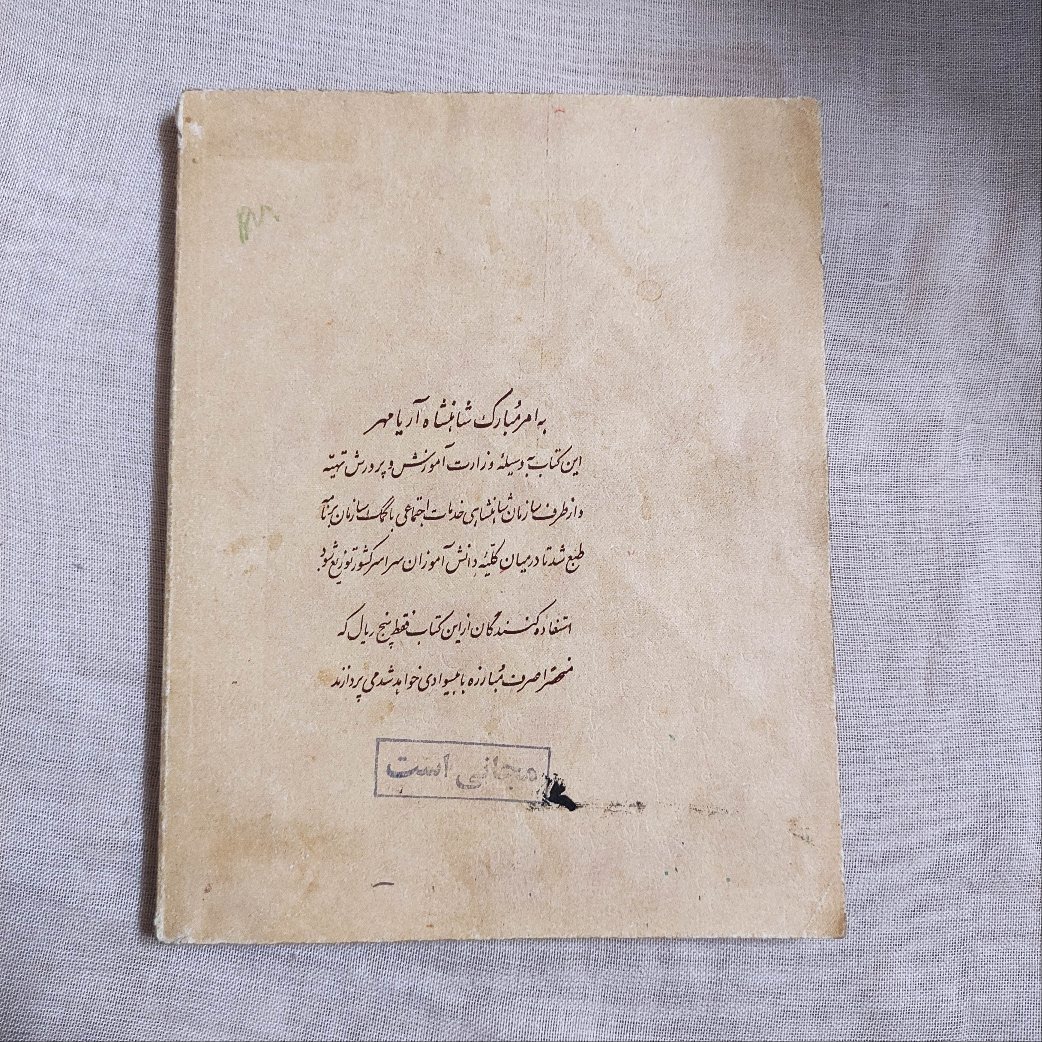 به امر مُبارک شاهنشاه آریامهر
این کتاب به وسیلهٔ وزارت آموزش و پرورش تهیّه
و از طرف سازمان شاهنشاهی خدمات اجتماعی با کمک سازمان برنامه
طبع شد تا در میان کلیّهٔ دانش آموزان سراسر کشور توزیع شود.
استفاده کنندگان از این کتاب فقط پنج ریال که
منحصراً صرف مُبارزه با بیسوادی خواهد شد می پردازند
مجانی است